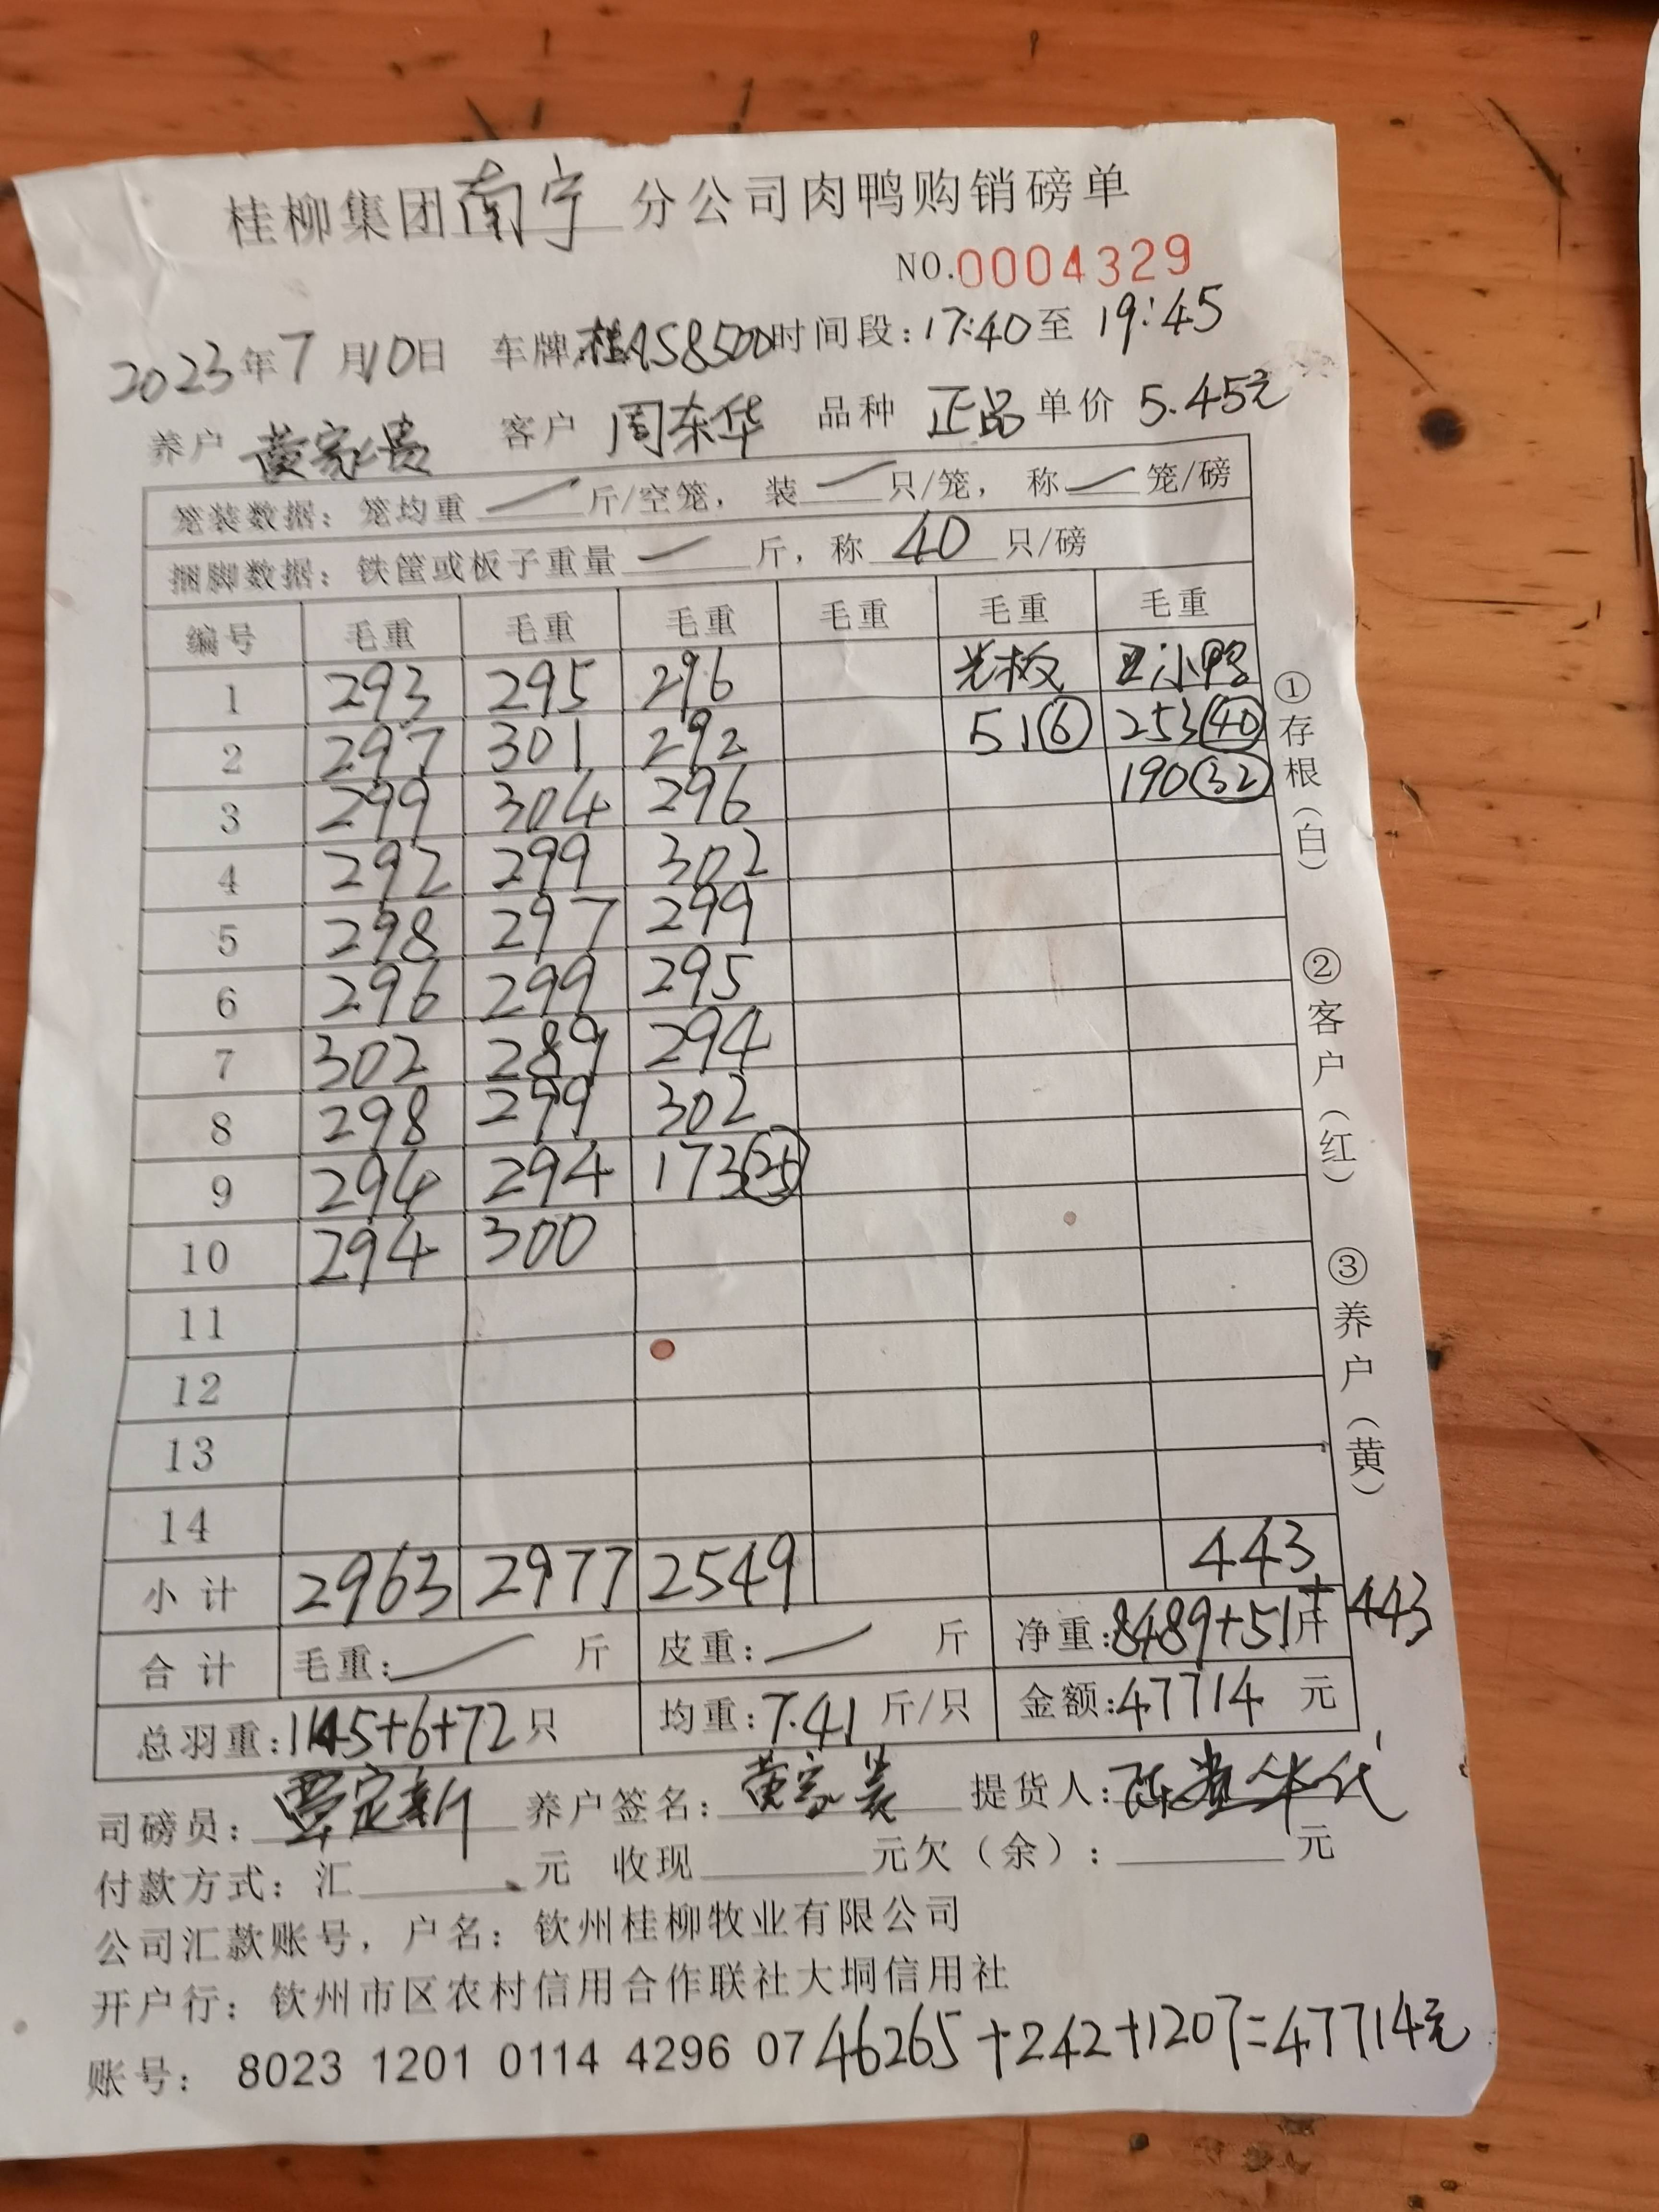 桂柳集团南宁分公司肉鸭购销磅单
NO.0004329
2023年7月10日 车牌:桂AS8500 时间段:17:40至19:45
养户 黄家贵 客户 周东华 品种 正品 单价 5.45元
笼装数据: 笼均重 / 斤/空笼, 装 / 只/笼, 称 / 笼/磅
捆脚数据: 铁筐或板子重量 / 斤, 称 40 只/磅
编号 毛重 毛重 毛重 毛重 毛重 毛重
1 293 295 296 光板 小鸭
2 297 301 292 51⑥ 253㊵
3 299 304 296 190㉜
4 292 299 302
5 298 297 299
6 296 299 295
7 302 289 294
8 298 299 302
9 294 294 173㉕
10 294 300
11
12
13
14
小计 2963 2977 2549 443
合计 毛重: / 斤 皮重: / 斤 净重:8489+51斤+443
总羽重:1145+6+72只 均重:7.41斤/只 金额:47714元
司磅员: 覃定新 养户签名: 黄家贵 提货人: 代
付款方式: 汇 元 收现 元欠(余): 元
公司汇款账号, 户名: 钦州桂柳牧业有限公司
开户行: 钦州市区农村信用合作联社大垌信用社
账号: 8023 1201 0114 4296 07
46265+242+1207=47714元
①存根(白)
②客户(红)
③养户(黄)